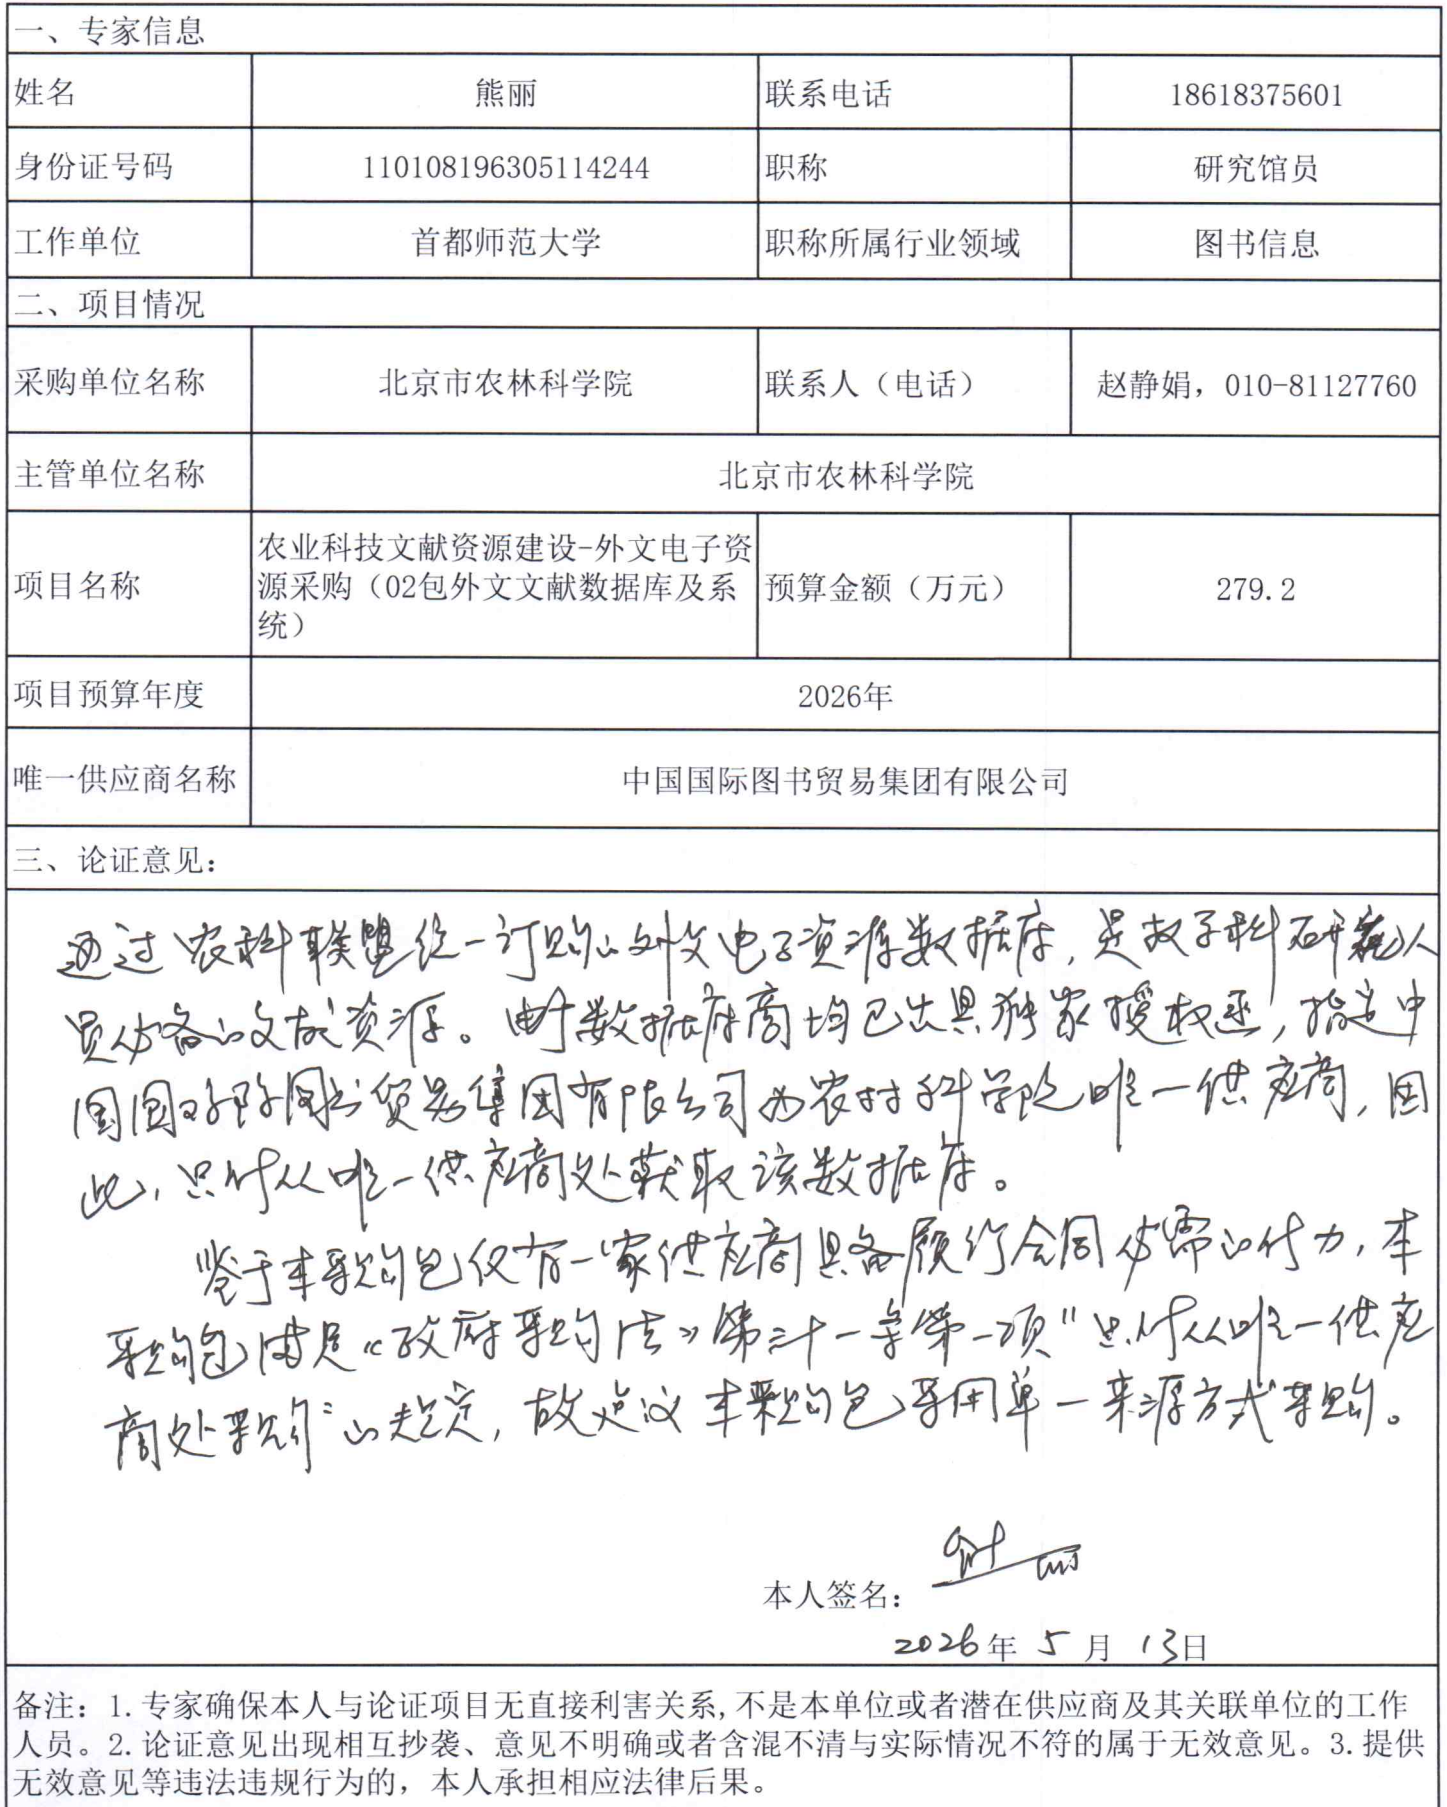 一、专家信息
姓名 熊丽 联系电话 18618375601
身份证号码 110108196305114244 职称 研究馆员
工作单位 首都师范大学 职称所属行业领域 图书信息
二、项目情况
采购单位名称 北京市农林科学院 联系人（电话） 赵静娟，010-81127760
主管单位名称 北京市农林科学院
项目名称 农业科技文献资源建设-外文电子资
源采购（02包外文文献数据库及系
统） 预算金额（万元） 279.2
项目预算年度 2026年
唯一供应商名称 中国国际图书贸易集团有限公司
三、论证意见：
通过农科联盟统一订购的外文电子资源数据库，是农科研人
员必备的文献资源。由于数据库商均已出具独家授权函，指定中
国国际图书贸易集团有限公司为农林科学院唯一供应商，因
此，只能从唯一供应商处获取该数据库。
鉴于本采购包仅有一家供应商具备履行合同必需的能力，本
采购包满足《政府采购法》第三十一条第一项“只能从唯一供应
商处采购”的规定，故建议本采购包采用单一来源方式采购。
本人签名：熊丽
2026年 5 月 13日
备注：1.专家确保本人与论证项目无直接利害关系,不是本单位或者潜在供应商及其关联单位的工作
人员。2.论证意见出现相互抄袭、意见不明确或者含混不清与实际情况不符的属于无效意见。3.提供
无效意见等违法违规行为的，本人承担相应法律后果。